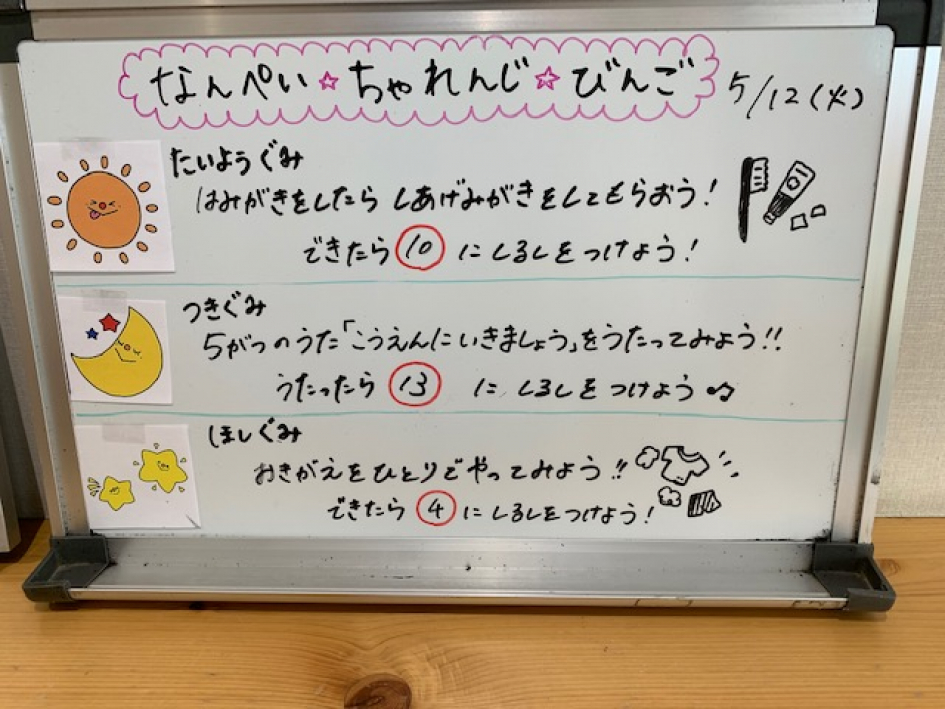 なんぺい☆ちゃれんじ☆びんご 5/12(火)
たいようぐみ
はみがきをしたら しあげみがきをしてもらおう!
できたら 10 にしるしをつけよう!
つきぐみ
5がつのうた「こうえんにいきましょう」をうたってみよう!!
うたったら 13 にしるしをつけよう♫
ほしぐみ
おきがえをひとりでやってみよう!!
できたら 4 にしるしをつけよう!